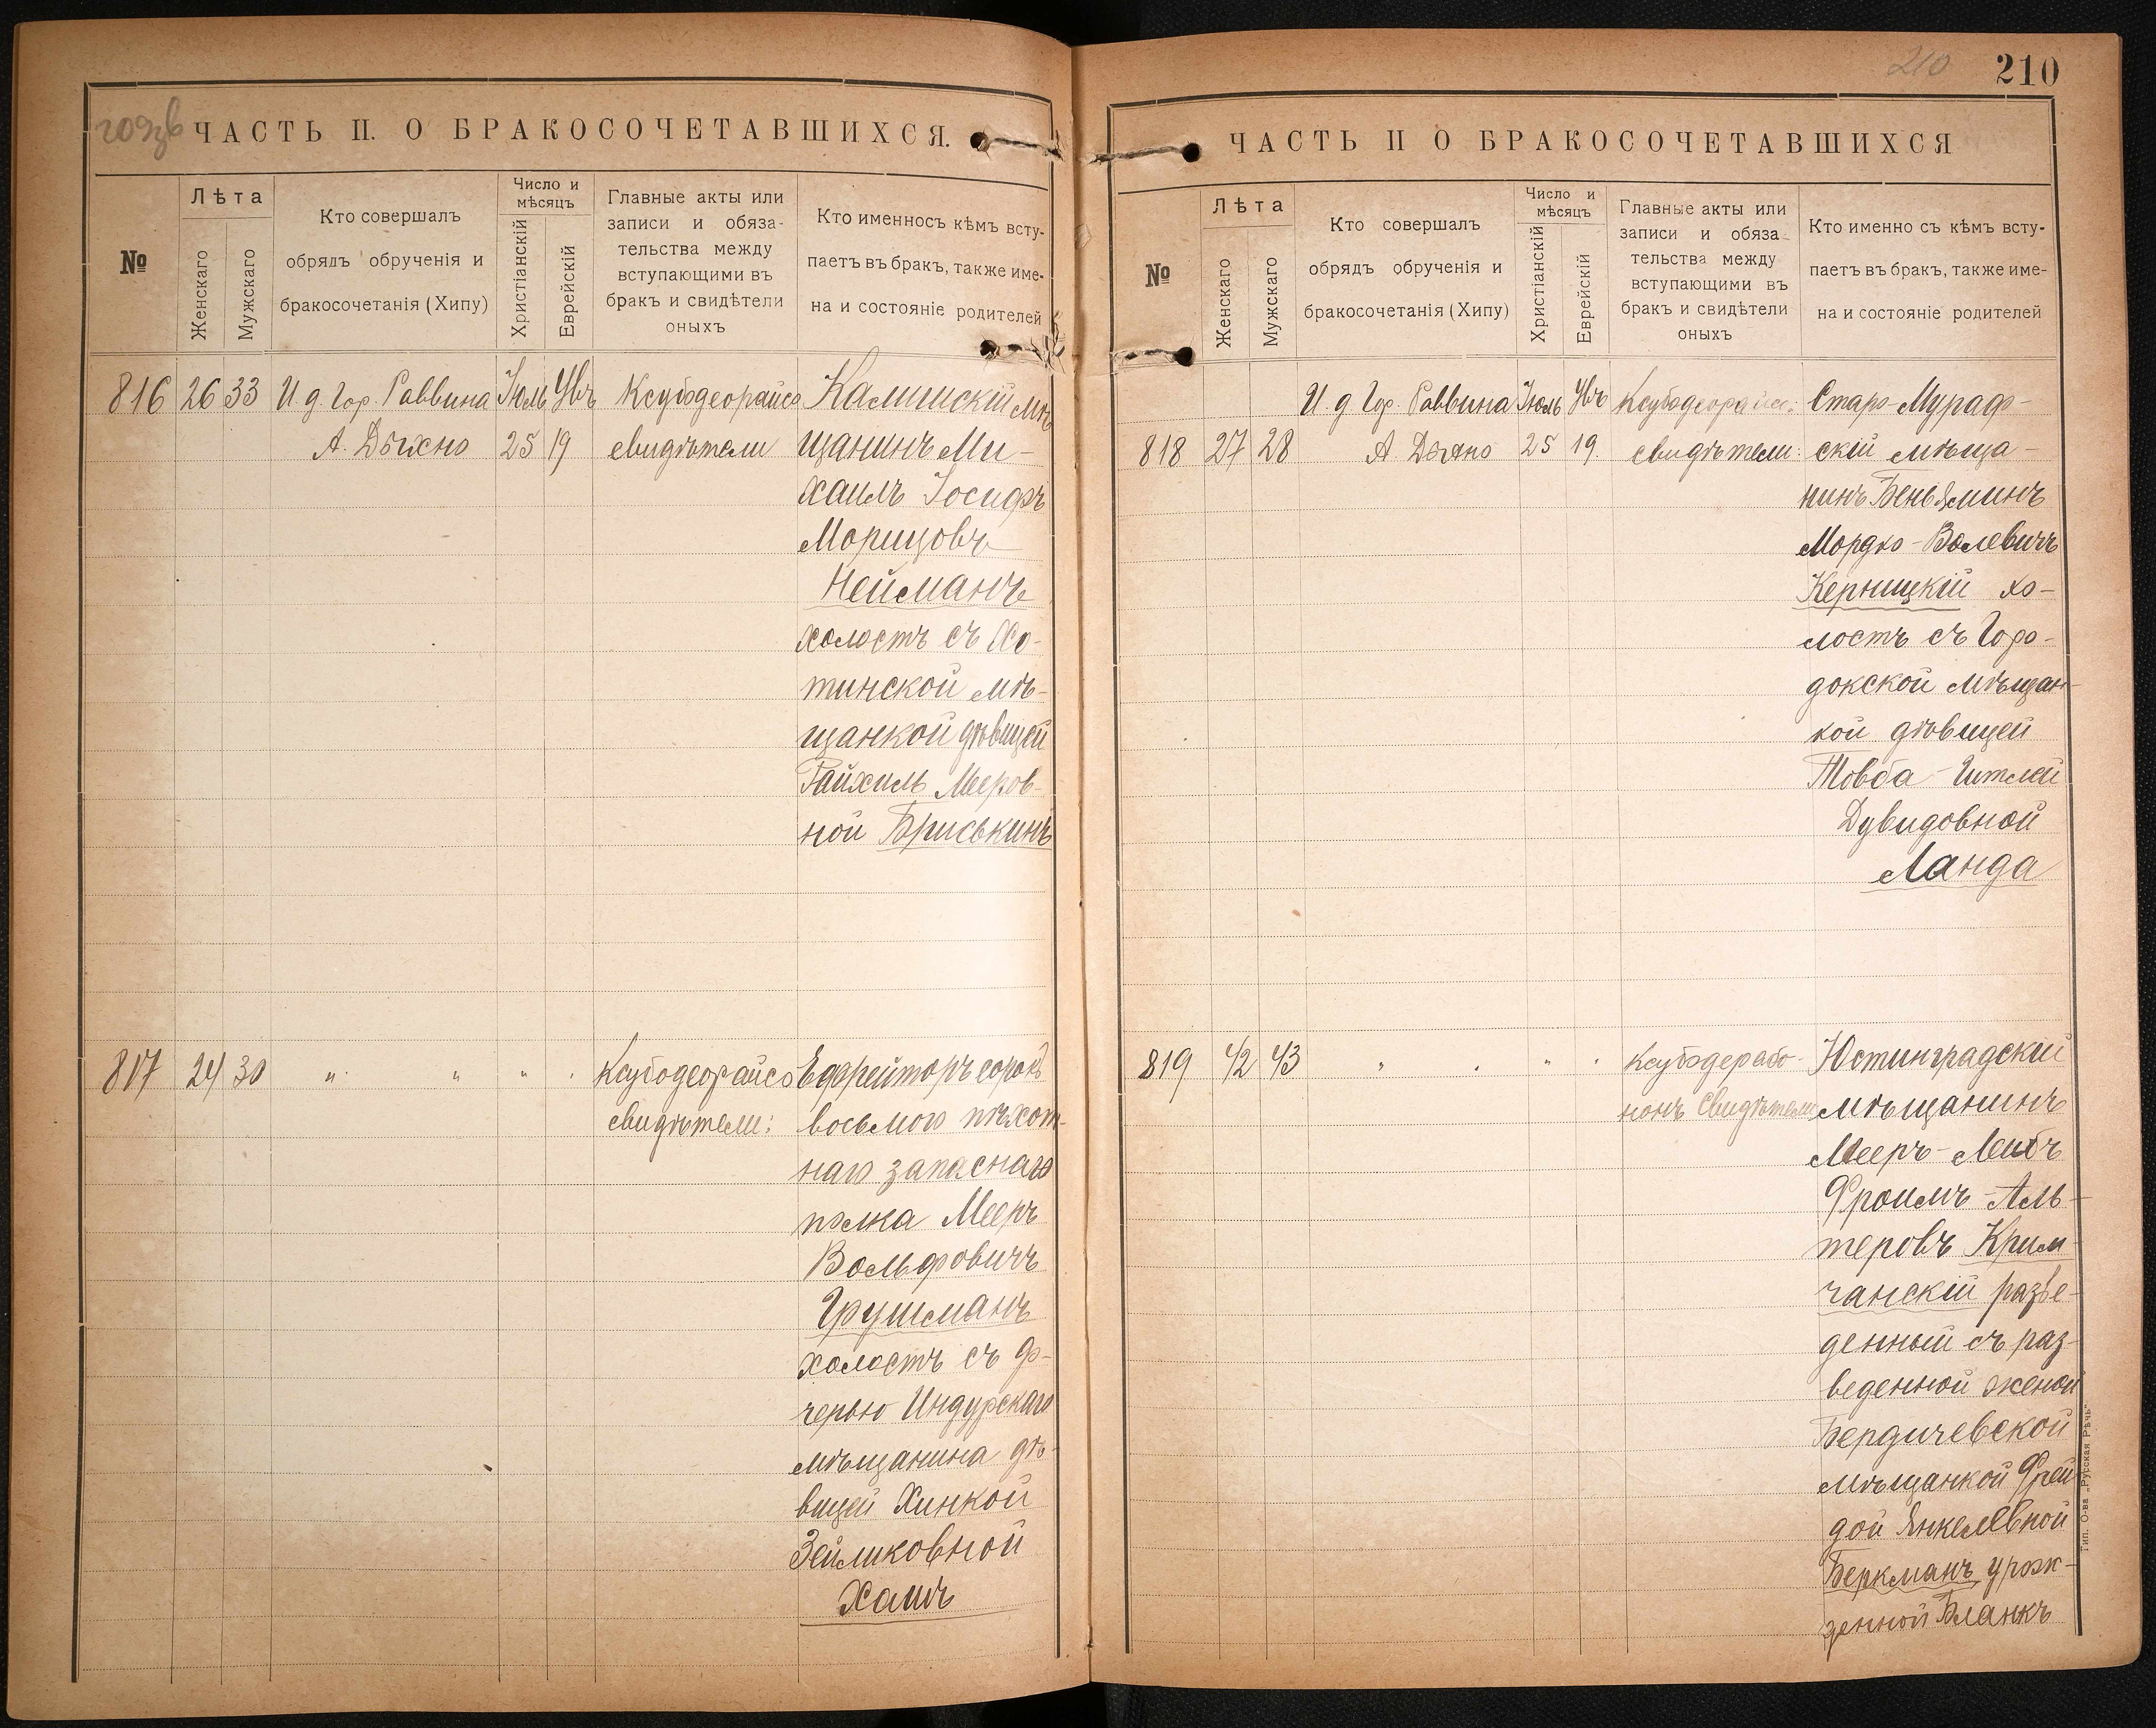 ЧАСТЬ II. О БРАКОСОЧЕТАВШИХСЯ.
№
Лѣта
Женскаго
Мужскаго
Кто совершалъ
обрядъ обрученія и
бракосочетанія (Хипу)
Число и
мѣсяцъ
Христіанскій
Еврейскій
Главные акты или
записи и обяза-
тельства между
вступающими въ
бракъ и свидѣтели
оныхъ
Кто именносъ кѣмъ всту-
паетъ въ бракъ, также име-
на и состояніе родителей
816 26 33 И д. Гор. Раввина Іюль Увъ Ксубодеорайсо Калишскій мѣ
А. Дыхно 25 19 свидѣтели щанинъ Ми-
хаилъ Іосифъ
Морицовъ
Нейманъ
холостъ съ Хо-
тинской мѣ-
щанкой дѣвицей
Райхиль Мееров-
ной Бриськинъ
817 24 30 " " " Ксубодеорайсо Ефрейторъ сорокъ
свидѣтели: восьмого пѣхот-
наго запаснаго
полка Мееръ
Вольфовичъ
Грушманъ
холостъ съ до-
черью Индурскаго
мѣщанина дѣ-
вицей Хинкой
Зейликовной
Хаитъ
210
210
ЧАСТЬ II О БРАКОСОЧЕТАВШИХСЯ
№
Лѣта
Женскаго
Мужскаго
Кто совершалъ
обрядъ обрученія и
бракосочетанія (Хипу)
Число и
мѣсяцъ
Христіанскій
Еврейскій
Главные акты или
записи и обяза-
тельства между
вступающими въ
бракъ и свидѣтели
оныхъ
Кто именно съ кѣмъ всту-
паетъ въ бракъ, также име-
на и состояніе родителей
И. д Гор. Раввина Іюль Увъ Ксубодеорайсо: Старо-Мураф-
818 27 28 А Дыхно 25 19. свидѣтели: скій мѣща-
нинъ Беньяминъ
Мордко-Волевичъ
Керницкій хо-
лостъ съ Горо-
докской мѣщан-
кой дѣвицей
Товба-Гитлей
Дувидовной
Ланда
819 42 43 " " Ксубодерабо- Юстинградскій
нонъ свидѣтели мѣщанинъ
Мееръ-Лейбъ
Фроимъ-Аль-
теровъ Крим-
чанскій разве-
денный съ раз-
веденной женой
Бердичевской
мѣщанкой Фрей
дой Янкелевной
Беркманъ, урож-
денной Бланкъ
Тип. О-ва „Русская Рѣчь"